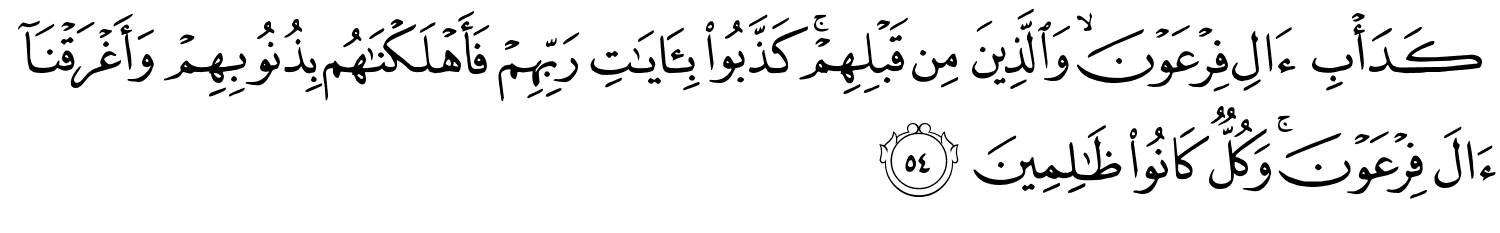 كَدَأۡبِ ءَالِ فِرۡعَوۡنَۙ وَٱلَّذِينَ مِن قَبۡلِهِمۡۚ كَذَّبُواْ بِـَٔايَٰتِ رَبِّهِمۡ فَأَهۡلَكۡنَٰهُم بِذُنُوبِهِمۡ وَأَغۡرَقۡنَآ
ءَالَ فِرۡعَوۡنَۚ وَكُلّٞ كَانُواْ ظَٰلِمِينَ ٥٤